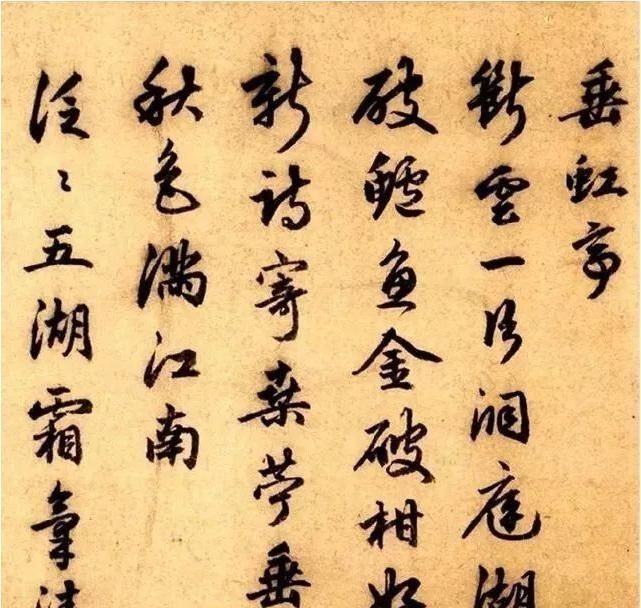 垂虹亭
斷雲一片洞庭湖
破鱸魚金破柑好
新詩寄桑苧垂
秋色滿江南
泛〻五湖霜氣清